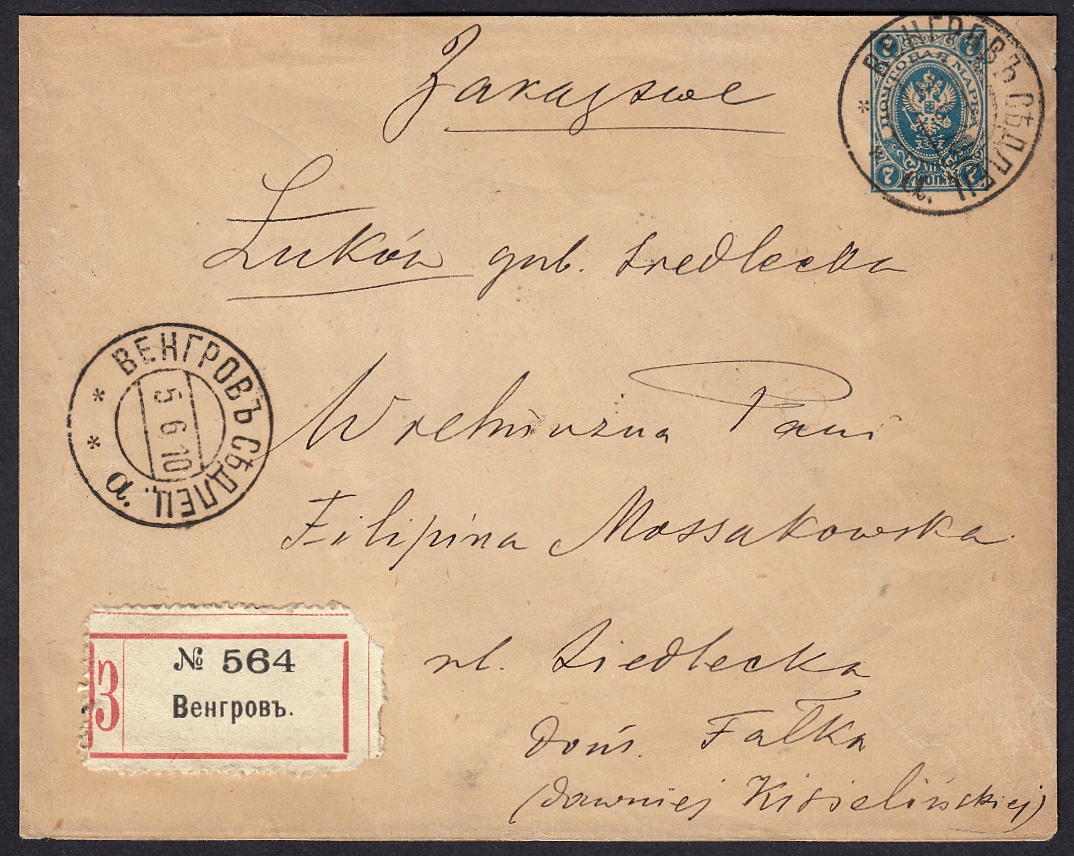 Заказное
ВЕНГРОВЪ СѢДЛЕЦ. а.
7 7
ПОЧТОВАЯ МАРКА
7 КОП. 7
Łuków gub. Siedlecka
ВЕНГРОВЪ СѢДЛЕЦ. а.
5 6.10
Wielmożna Pani
Filipina Mossakowska
З
№ 564
Венгровъ.
ul. Siedlecka
dom. Falka
(dawniej Kisielińskiej)